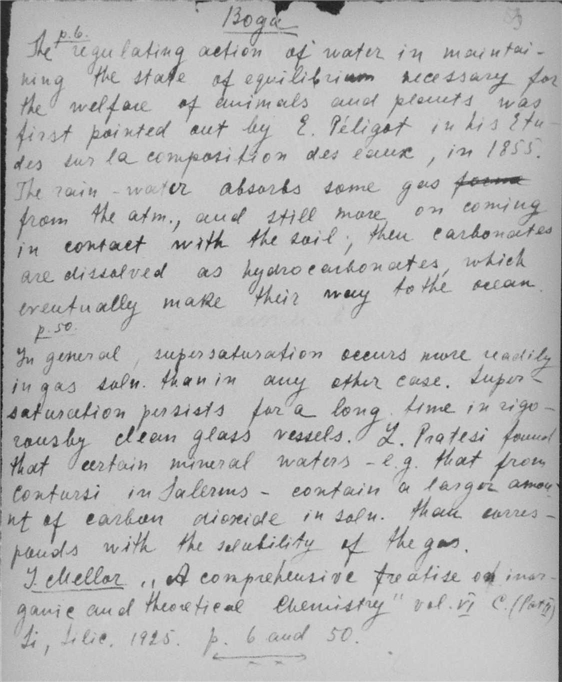 Вода
p.6.
The regulating action of water in maintai-
ning the state of equilibrium necessary for
the welfare of animals and plants was
first pointed out by E. Péligot in his Etu-
des sur la composition des eaux, in 1855.
The rain-water absorbs some gas
from the atm., and still more on coming
in contact with the soil; then carbonates
are dissolved as hydrocarbonates, which
eventually make their way to the ocean.
p. 50.
In general, supersaturation occurs more readily
in gas soln. than in any other case. Super-
saturation persists for a long time in rigo-
rously clean glass vessels. L. Pratesi found
that certain mineral waters - e.g. that from
Contursi in Salerno - contain a larger amou-
nt of carbon dioxide in soln. than corres-
ponds with the solubility of the gas.
J Mellor „A comprehensive treatise on inor-
ganic and theoretical Chemistry" vol. VI C. (Part II)
Si, Silic. 1925. p. 6 and 50.